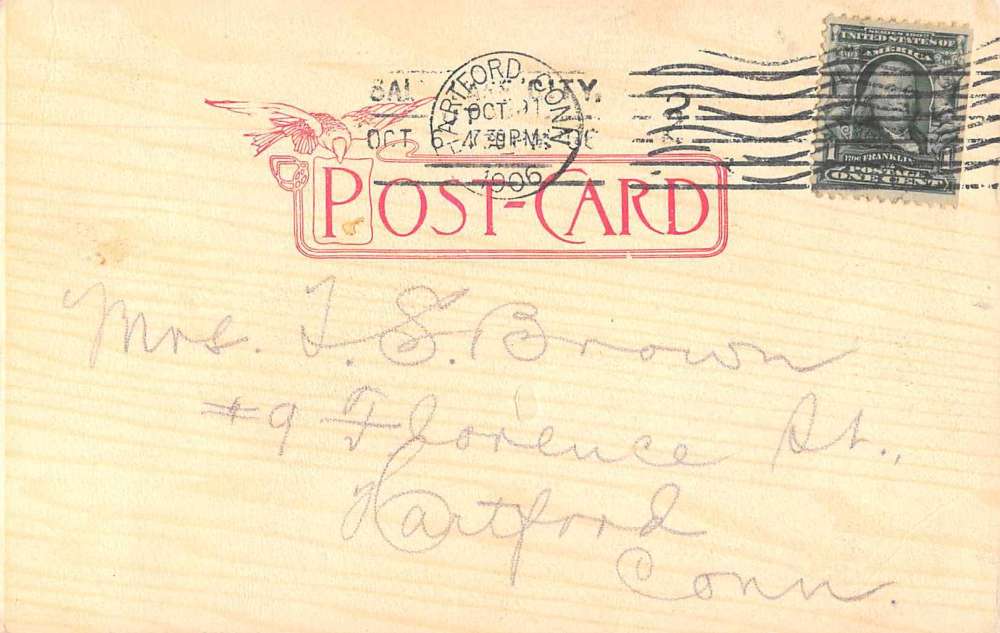 SERIES 1902
UNITED STATES OF
AMERICA
FRANKLIN
POSTAGE
ONE CENT
CITY.
OCT
2
HARTFORD, CONN
OCT
PM
1906
POST-CARD
Mrs. T. S. Brown
#9 Florence St.,
Hartford
Conn.